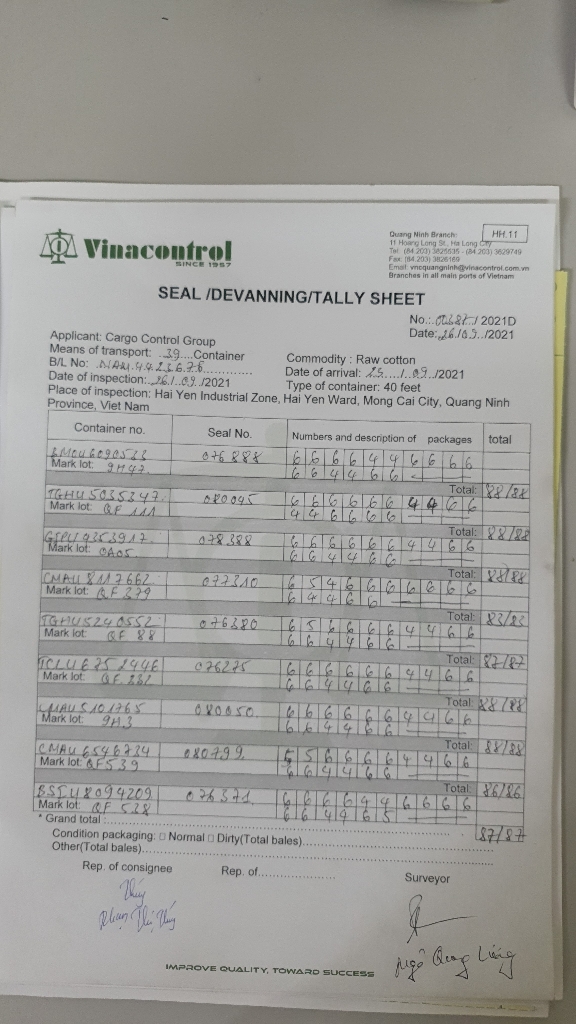 Vinacontrol
SINCE 1957
HH.11
Quang Ninh Branch:
11 Hoang Long St., Ha Long City
Tel: (84.203) 3825535 - (84.203) 3629749
Fax: (84.203) 3826169
Email: vncquangninh@vinacontrol.com.vn
Branches in all main ports of Vietnam
SEAL /DEVANNING/TALLY SHEET
No.: / 2021D
Date: 26/09./2021
Applicant: Cargo Control Group
Means of transport: 39 Container
Commodity : Raw cotton
B/L No: NAM4423676
Date of arrival: 25/.09./2021
Date of inspection: 26./.09./2021
Type of container: 40 feet
Place of inspection: Hai Yen Industrial Zone, Hai Yen Ward, Mong Cai City, Quang Ninh
Province, Viet Nam
Container no. Seal No. Numbers and description of packages total
076888 6 6 6 6 4 4 6 6 6 6
Mark lot: 9H47 6 6 4 4 6 6
Total: 88/88
TGHU5035347 080045 6 6 6 6 6 6 4 4 6 6
Mark lot: QF 111 4 4 6 6 6 6
Total: 88/88
078388 6 6 6 6 6 6 4 4 6 6
Mark lot: 0A05 6 6 4 4 6 6
Total: 88/88
CMAU 8117662 077310 6 5 4 6 6 6 6 6 6 6
Mark lot: QF 379 6 4 4 6 6
Total: 83/83
TGHU5240552 076380 6 5 6 6 6 6 4 4 6 6
Mark lot: QF 88 6 6 4 4 6 6
Total: 87/87
076275 6 6 6 6 6 6 4 4 6 6
Mark lot: QF 232 6 6 4 4 6 6
Total: 88/88
CMAU5101765 080050 6 6 6 6 6 6 4 4 6 6
Mark lot: 9H3 6 6 4 4 6 6
Total: 88/88
CMAU 6546734 080799 5 5 6 6 6 6 4 4 6 6
Mark lot: QF539 6 6 4 4 6 6
Total: 86/86
BSIU8094209 076371 6 6 6 6 4 4 6 6 6 6
Mark lot: QF 538 6 6 4 4 6 5
* Grand total : 87/87
Condition packaging: □ Normal □ Dirty(Total bales)
Other(Total bales)
Rep. of consignee Rep. of Surveyor
Thúy
Phạm Thị Thúy
Ngô Quang
IMPROVE QUALITY, TOWARD SUCCESS